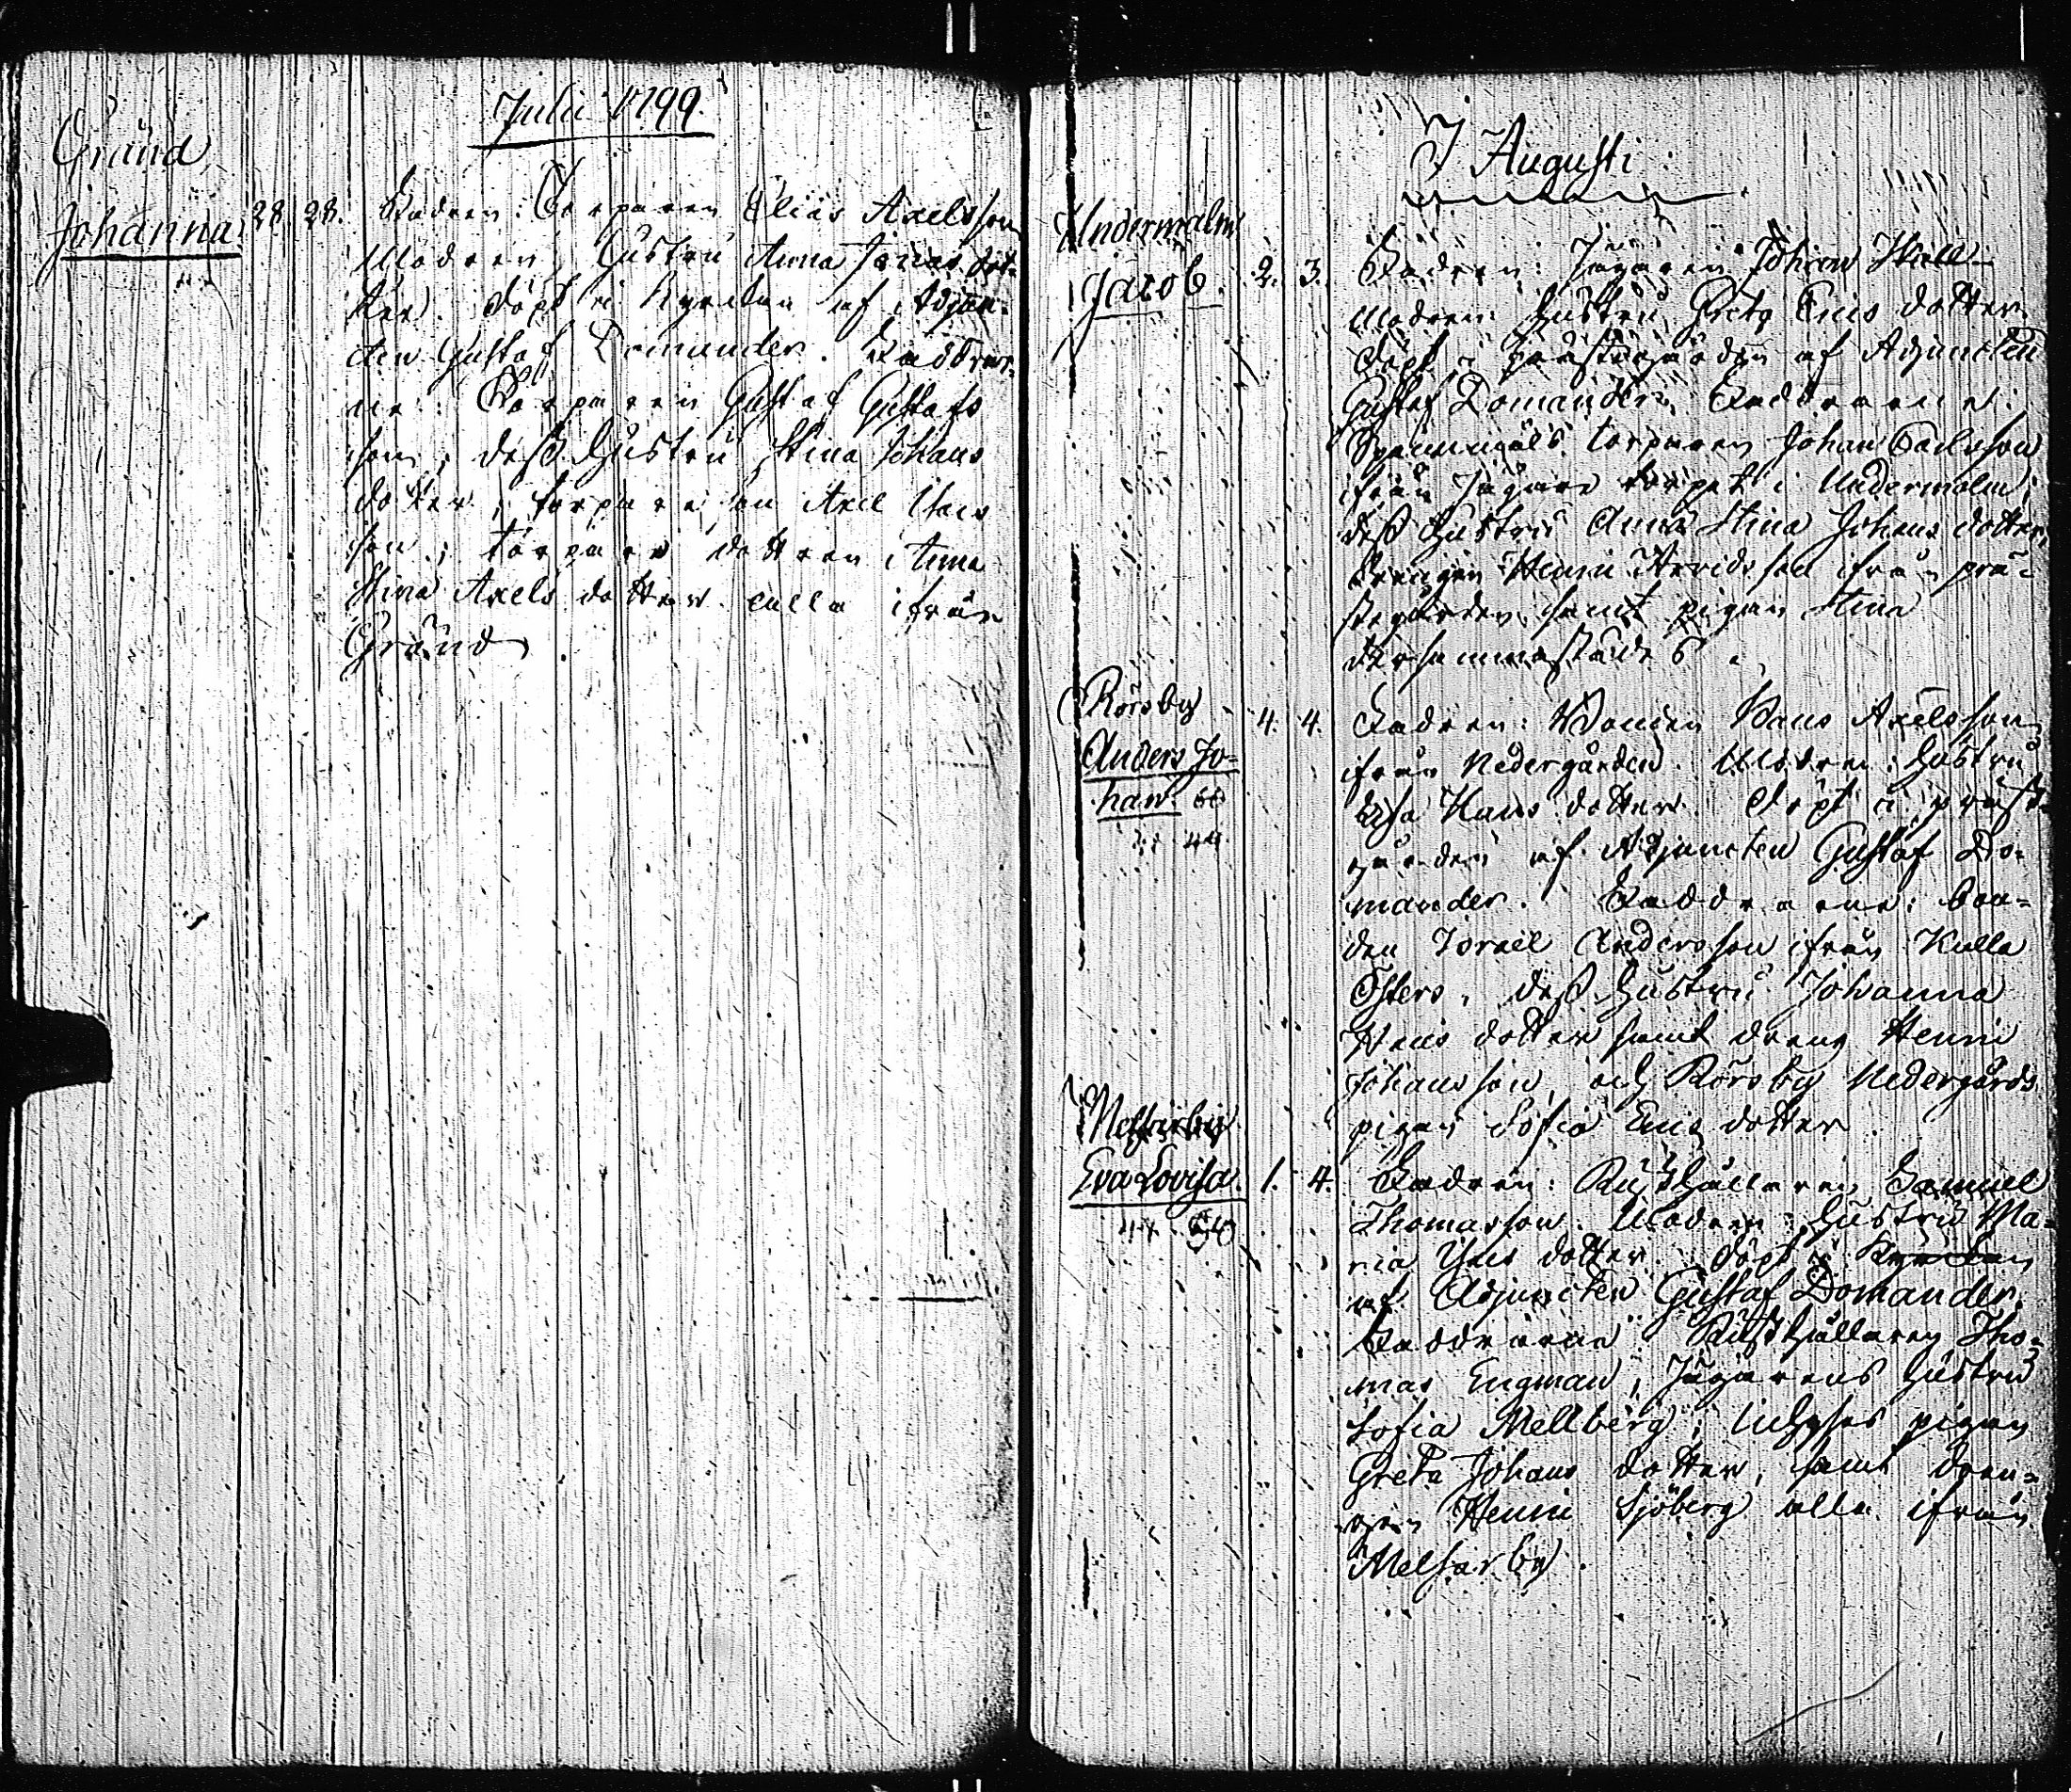 Julii 1799.
Gränd
Johanna. 28. 28. Fadren: Torparen Elias Axelsson
Modren, Hustru Anna Jonas dot-
ter. Döpt i Kyrckan af Adjunc-
ten Gustaf Domander. Faddrar-
ne: Torparen Gustaf Gustafs
son, dess Hustru Stina Johans
dotter, torpare son Axel
son; torpare dottren Anna
Stina Axels dotter alla ifrån
Gränd
I Augusti
Undermalm
Jacob. 2. 3. Fadren: Jägaren Johan
Modren: Hustru Greta Eris dotter
döpt i prästegården af Adjuncten
Gustaf Domander. Faddrarne:
Spannmåls torparen Johan Carlsson
ifrån Jägare torpet i Undermalm;
dess Hustru Anna Stina Johans dotter,
Drengen Henric Arvidsson ifrån prä-
stegården, samt pigan Stina
dersammastädes.
Rörsby 4. 4. Fadren: Bonden Hans Axelsson
Anders Jo- ifrån Nedergården. Modren: Hustru
han. Lisa Hans dotter. Döpt i prest-
44 gården af Adjuncten Gustaf Do-
mander. Faddrarne: bon-
den Israel Andersson ifrån Kulla
Östers, dess Hustru Johanna
dotter samt dreng Henric
Johansson, och Rörsby Nedergårds
pigan Sofia Eris dotter.
Melsarby
Eva Lovisa. 1. 4. Fadren: Rusthållaren Samuel
Thomasson. Modren: Hustru Ma-
ria dotter. Döpt i Kyrckan
af Adjuncten Gustaf Domander.
Faddrarne: Rusthållaren Tho-
mas Engman; Jägarens Hustru
Sofia Mellberg; pigan
Greta Johans dotter, samt dren-
gen Henric Sjöberg alla ifrån
Melsarby.